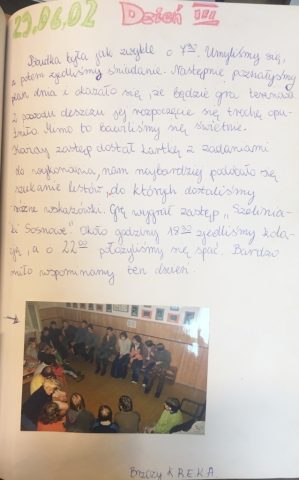 29.06.02 Dzień III
Pobudka była jak zwykle o 7³⁰. Umyliśmy się,
a potem zjedliśmy śniadanie. Następnie poznaliśmy
plan dnia i okazało się, że będzie gra terenowa
Z powodu deszczu jej rozpoczęcie się trochę opó-
źniło. Mimo to bawiliśmy się świetnie.
Każdy zastęp dostał kartkę z zadaniami
do wykonania, nam najbardziej podobało się
szukanie listów, do których dostaliśmy
różne wskazówki. Grę wygrał zastęp "
Około godziny 19⁰⁰ zjedliśmy kola-
cję, a o 22⁰⁰ położyliśmy się spać. Bardzo
miło wspominamy ten dzień.
KREKA